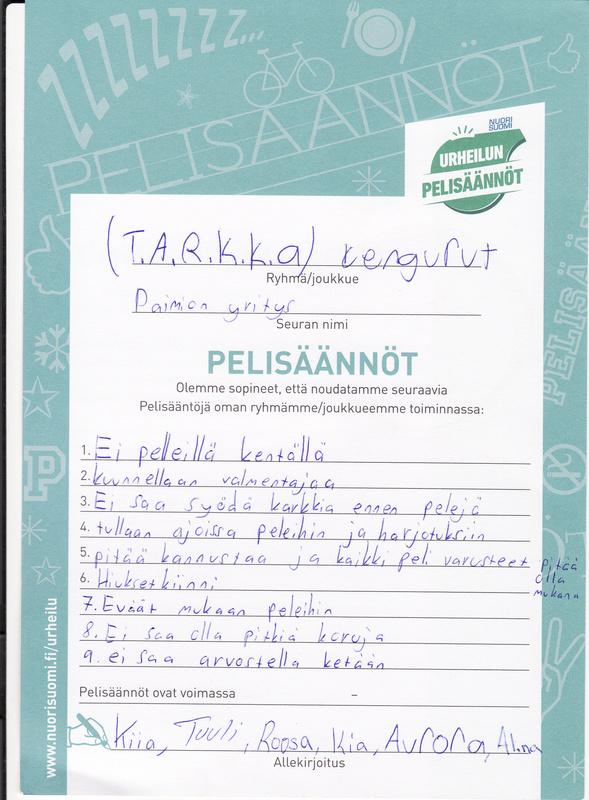 ZZZZZZZZ...
PELISÄÄNNÖT
NUORI
SUOMI
URHEILUN
PELISÄÄNNÖT
(T.A.R.K.K.a) kengurut
Ryhmä/joukkue
Paimion yritys
Seuran nimi
PELISÄÄNNÖT
Olemme sopineet, että noudatamme seuraavia
Pelisääntöjä oman ryhmämme/joukkueemme toiminnassa:
1. Ei pelleillä kentällä
2. kuunnellaan valmentajaa
3. Ei saa syödä karkkia ennen pelejä
4. tullaan ajoissa peleihin ja harjotuksiin
5. pitää kannustaa ja kaikki peli varusteet pitää
olla
mukana
6. Hiukset kiinni
7. Eväät mukaan peleihin
8. Ei saa olla pitkiä koruja
9. ei saa arvostella ketään
Pelisäännöt ovat voimassa –
Kiia, Tuuli, Roosa, Kia, Aurora, Alina
Allekirjoitus
www.nuorisuomi.fi/urheilu
P